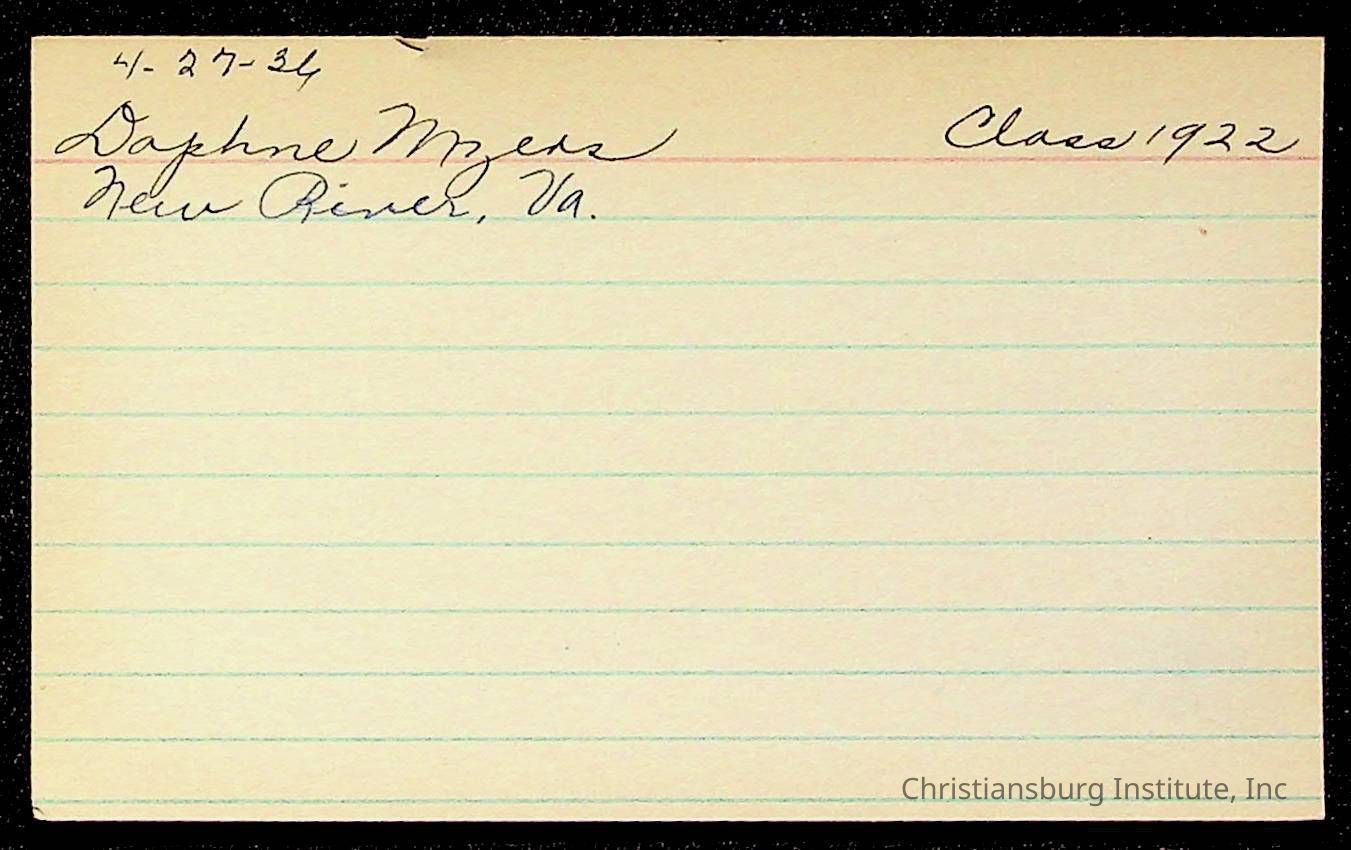 4-27-36
Daphne Myers Class 1922
New River, Va.
Christiansburg Institute, Inc